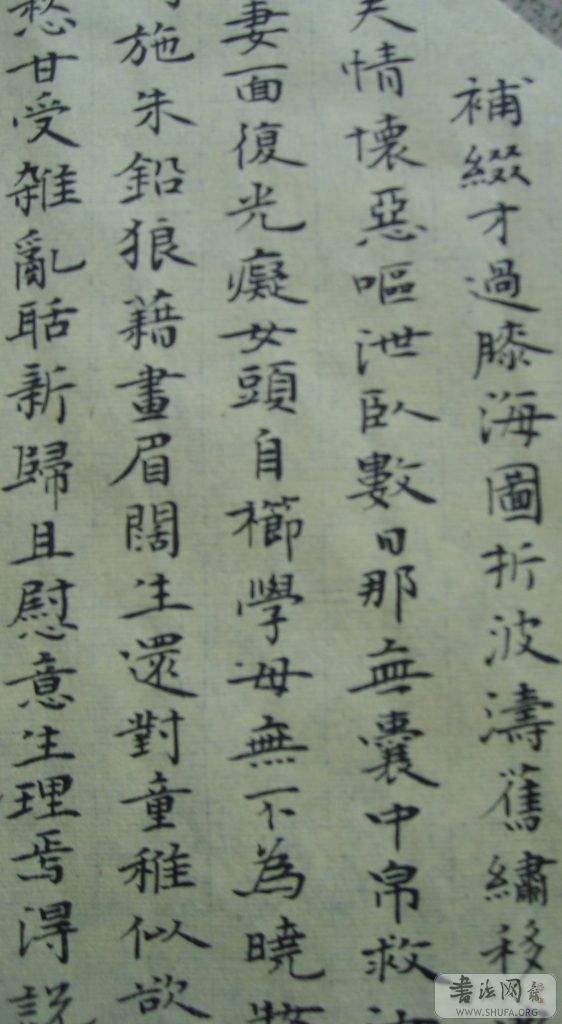 補綴才過膝海圖折波濤舊繡移
夫情懷惡嘔泄臥數日那無囊中帛救
妻面復光癡女頭自櫛學母無不為曉
施朱鉛狼藉畫眉闊生還對童稚似欲
愁甘受雜亂聒新歸且慰意生理焉得説
書法网
WWW.SHUFA.ORG